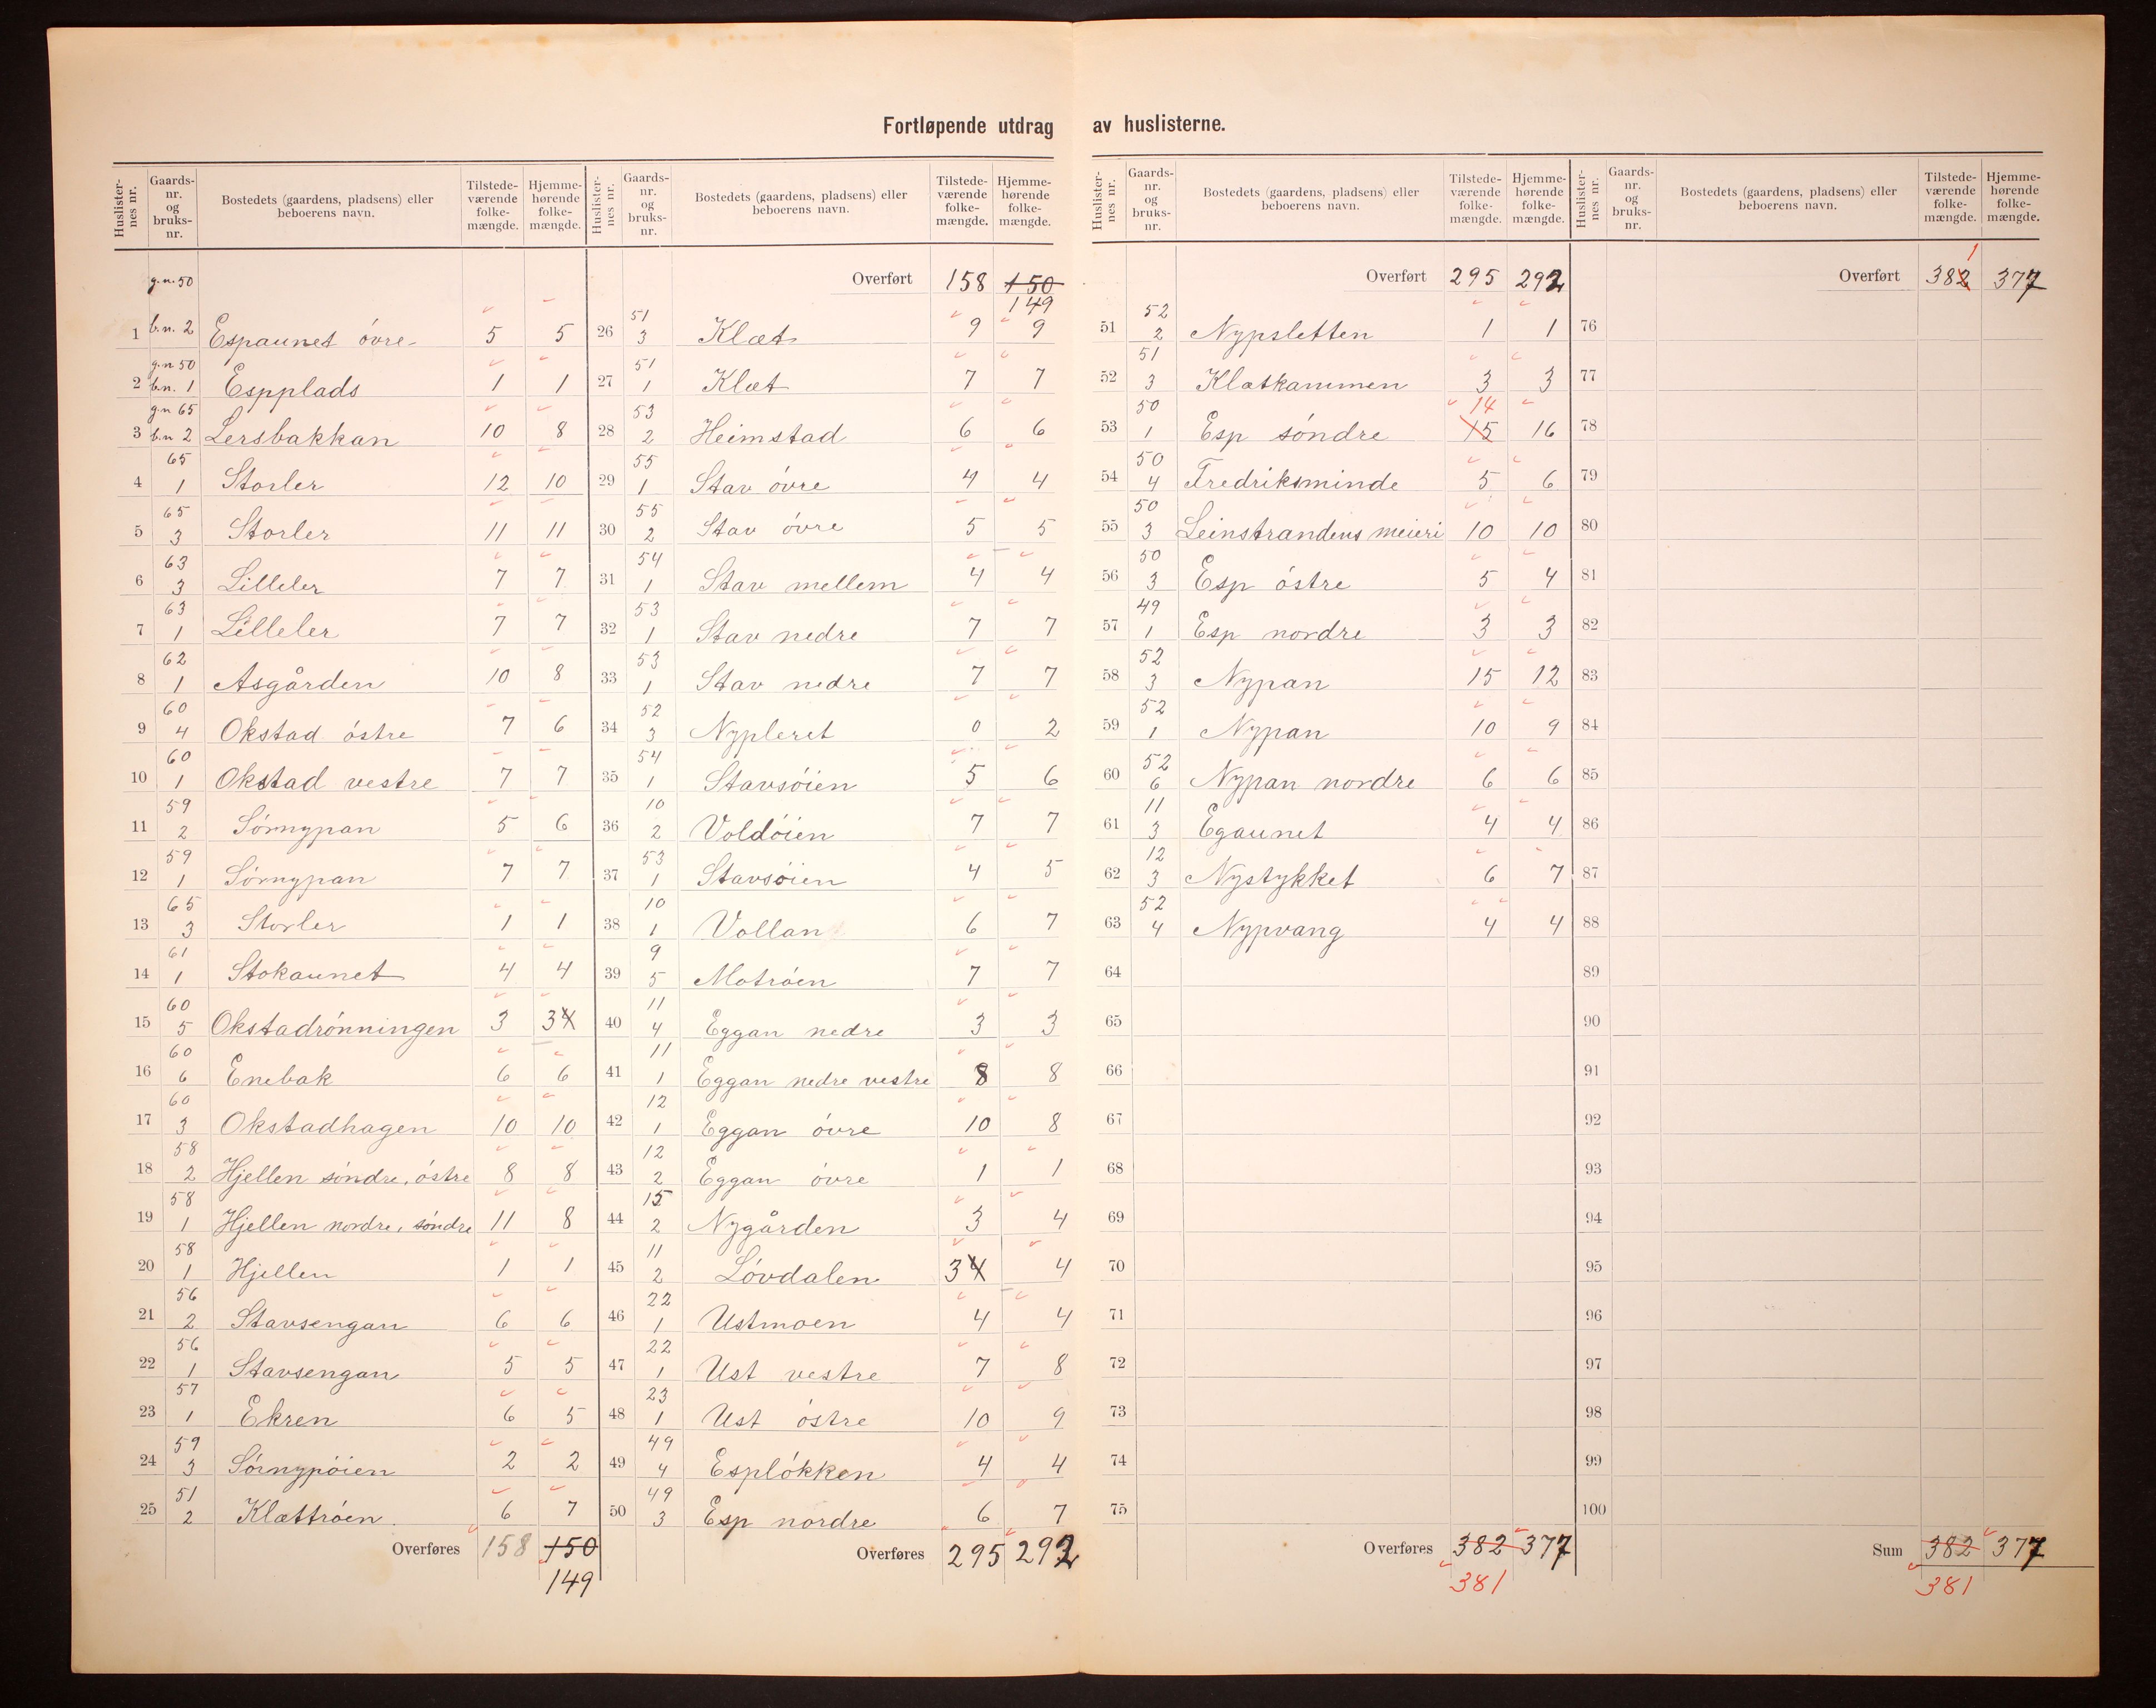 Fortløpende utdrag av huslisterne.
Huslister-nes nr. | Gaards-nr. og bruks-nr. | Bostedets (gaardens, pladsens) eller beboerens navn. | Tilstede-værende folke-mængde. | Hjemme-hørende folke-mængde.
g.n. 50
1 b.n. 2 Espaunet óvre 5 5
g.n 50
2 b.n. 1 Espplads 1 1
g.n 65
3 b.n 2 Lersbakkan 10 8
65
4 1 Storler 12 10
65
5 3 Storler 11 11
63
6 3 Lilleler 7 7
63
7 1 Lilleler 7 7
62
8 1 Asgården 10 8
60
9 4 Okstad óstre 7 6
60
10 1 Okstad vestre 7 7
59
11 2 Sórnypan 5 6
59
12 1 Sórnypan 7 7
65
13 3 Storler 1 1
61
14 1 Stokaunet 4 4
60
15 5 Okstadrónningen 3 3 4
60
16 6 Enebak 6 6
60
17 3 Okstadhagen 10 10
58
18 2 Hjellen sóndre, óstre 8 8
58
19 1 Hjellen nordre, sóndre 11 8
58
20 1 Hjellen 1 1
56
21 2 Stavsengan 6 6
56
22 1 Stavsengan 5 5
57
23 1 Ekren 6 5
59
24 3 Sórnypóien 2 2
51
25 2 Klættróen 6 7
Overføres 158 150
149
Huslister-nes nr. | Gaards-nr. og bruks-nr. | Bostedets (gaardens, pladsens) eller beboerens navn. | Tilstede-værende folke-mængde. | Hjemme-hørende folke-mængde.
Overført 158 150
149
51
26 3 Klæt 9 9
51
27 1 Klæt 7 7
53
28 2 Heimstad 6 6
55
29 1 Stav óvre 4 4
55
30 2 Stav óvre 5 5
54
31 1 Stav mellem 4 4
53
32 1 Stav nedre 7 7
53
33 1 Stav nedre 7 7
52
34 3 Nypleret 0 2
54
35 1 Stavsóien 5 6
10
36 2 Voldóien 7 7
53
37 1 Stavsóien 4 5
10
38 1 Vollan 6 7
9
39 5 Motróen 7 7
11
40 4 Eggan nedre 3 3
11
41 1 Eggan nedre vestre 8 8
12
42 1 Eggan óvre 10 8
12
43 2 Eggan óvre 1 1
15
44 2 Nygården 3 4
11
45 2 Lóvdalen 3 4 4
22
46 1 Ustmoen 4 4
22
47 1 Ust vestre 7 8
23
48 1 Ust óstre 10 9
49
49 4 Esplókken 4 4
49
50 3 Esp nordre 6 7
Overføres 295 292
Huslister-nes nr. | Gaards-nr. og bruks-nr. | Bostedets (gaardens, pladsens) eller beboerens navn. | Tilstede-værende folke-mængde. | Hjemme-hørende folke-mængde.
Overført 295 292
52
51 2 Nypsletten 1 1
51
52 3 Klætkammen 3 3
50 14
53 1 Esp sóndre 15 16
50
54 4 Fredriksminde 5 6
50
55 3 Leinstrandens meieri 10 10
50
56 3 Esp óstre 5 4
49
57 1 Esp nordre 3 3
52
58 3 Nypan 15 12
52
59 1 Nypan 10 9
52
60 6 Nypan nordre 6 6
11
61 3 Egaunet 4 4
12
62 3 Nystykket 6 7
52
63 4 Nypvang 4 4
64
65
66
67
68
69
70
71
72
73
74
75
Overføres 382 377
381
Huslister-nes nr. | Gaards-nr. og bruks-nr. | Bostedets (gaardens, pladsens) eller beboerens navn. | Tilstede-værende folke-mængde. | Hjemme-hørende folke-mængde.
1
Overført 382 377
76
77
78
79
80
81
82
83
84
85
86
87
88
89
90
91
92
93
94
95
96
97
98
99
100
Sum 382 377
381